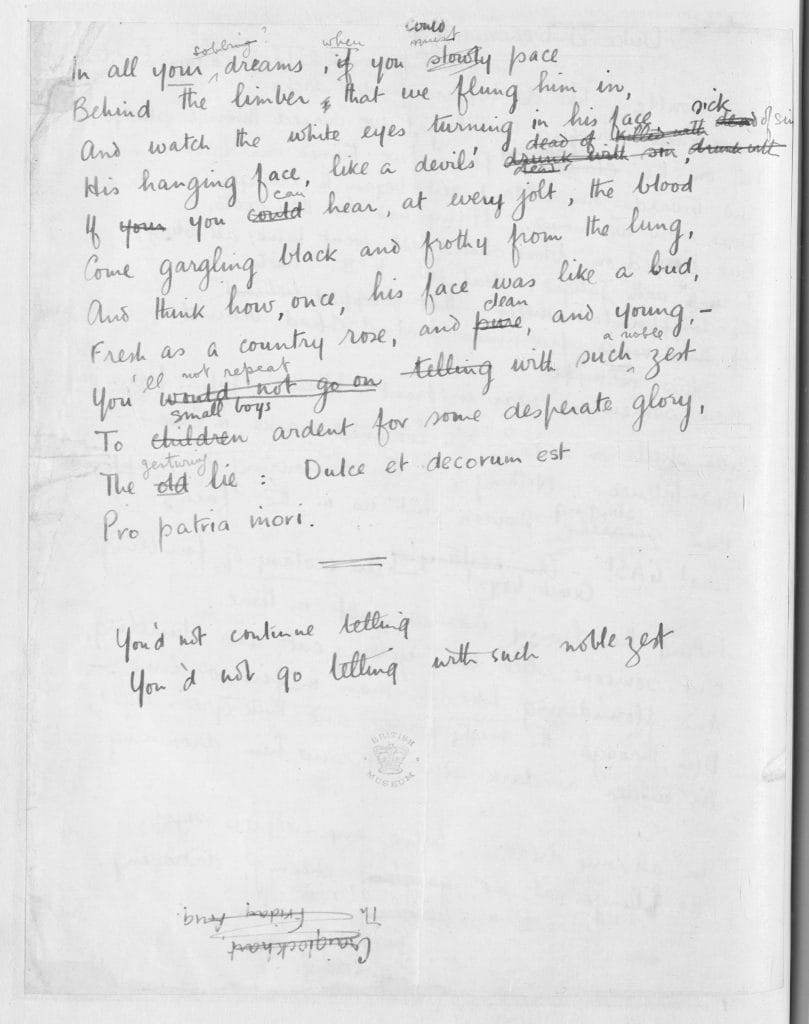 could
sobbing? when must
In all your dreams, if you slowly pace
Behind the limber, that we flung him in,
And watch the white eyes turning in his face
sick
dead of killed with dead of sin
His hanging face, like a devil's drunk with sin, drunk with
can dead,
If your you could hear, at every jolt, the blood
Come gargling black and frothy from the lung,
And think how, once, his face was like a bud,
clean
Fresh as a country rose, and pure, and young,—
'll not repeat a noble
You would not go on telling with such zest
small boys
To children ardent for some desperate glory,
gesturing
The old lie: Dulce et decorum est
Pro patria mori.
You'd not continue telling
You'd not go telling with such noble zest
BRITISH
MUSEUM
Craiglockhart
Th Friday Aug.